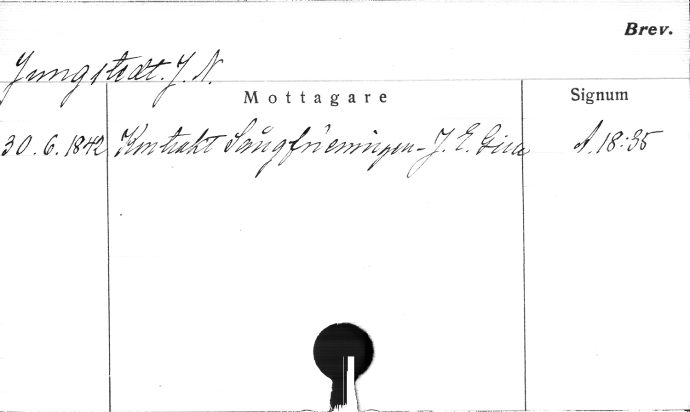 Brev.
Jungstedt. J. N.
Mottagare Signum
30.6.1842 Kontrakt Sångföreningen - J. E. A. 18:35